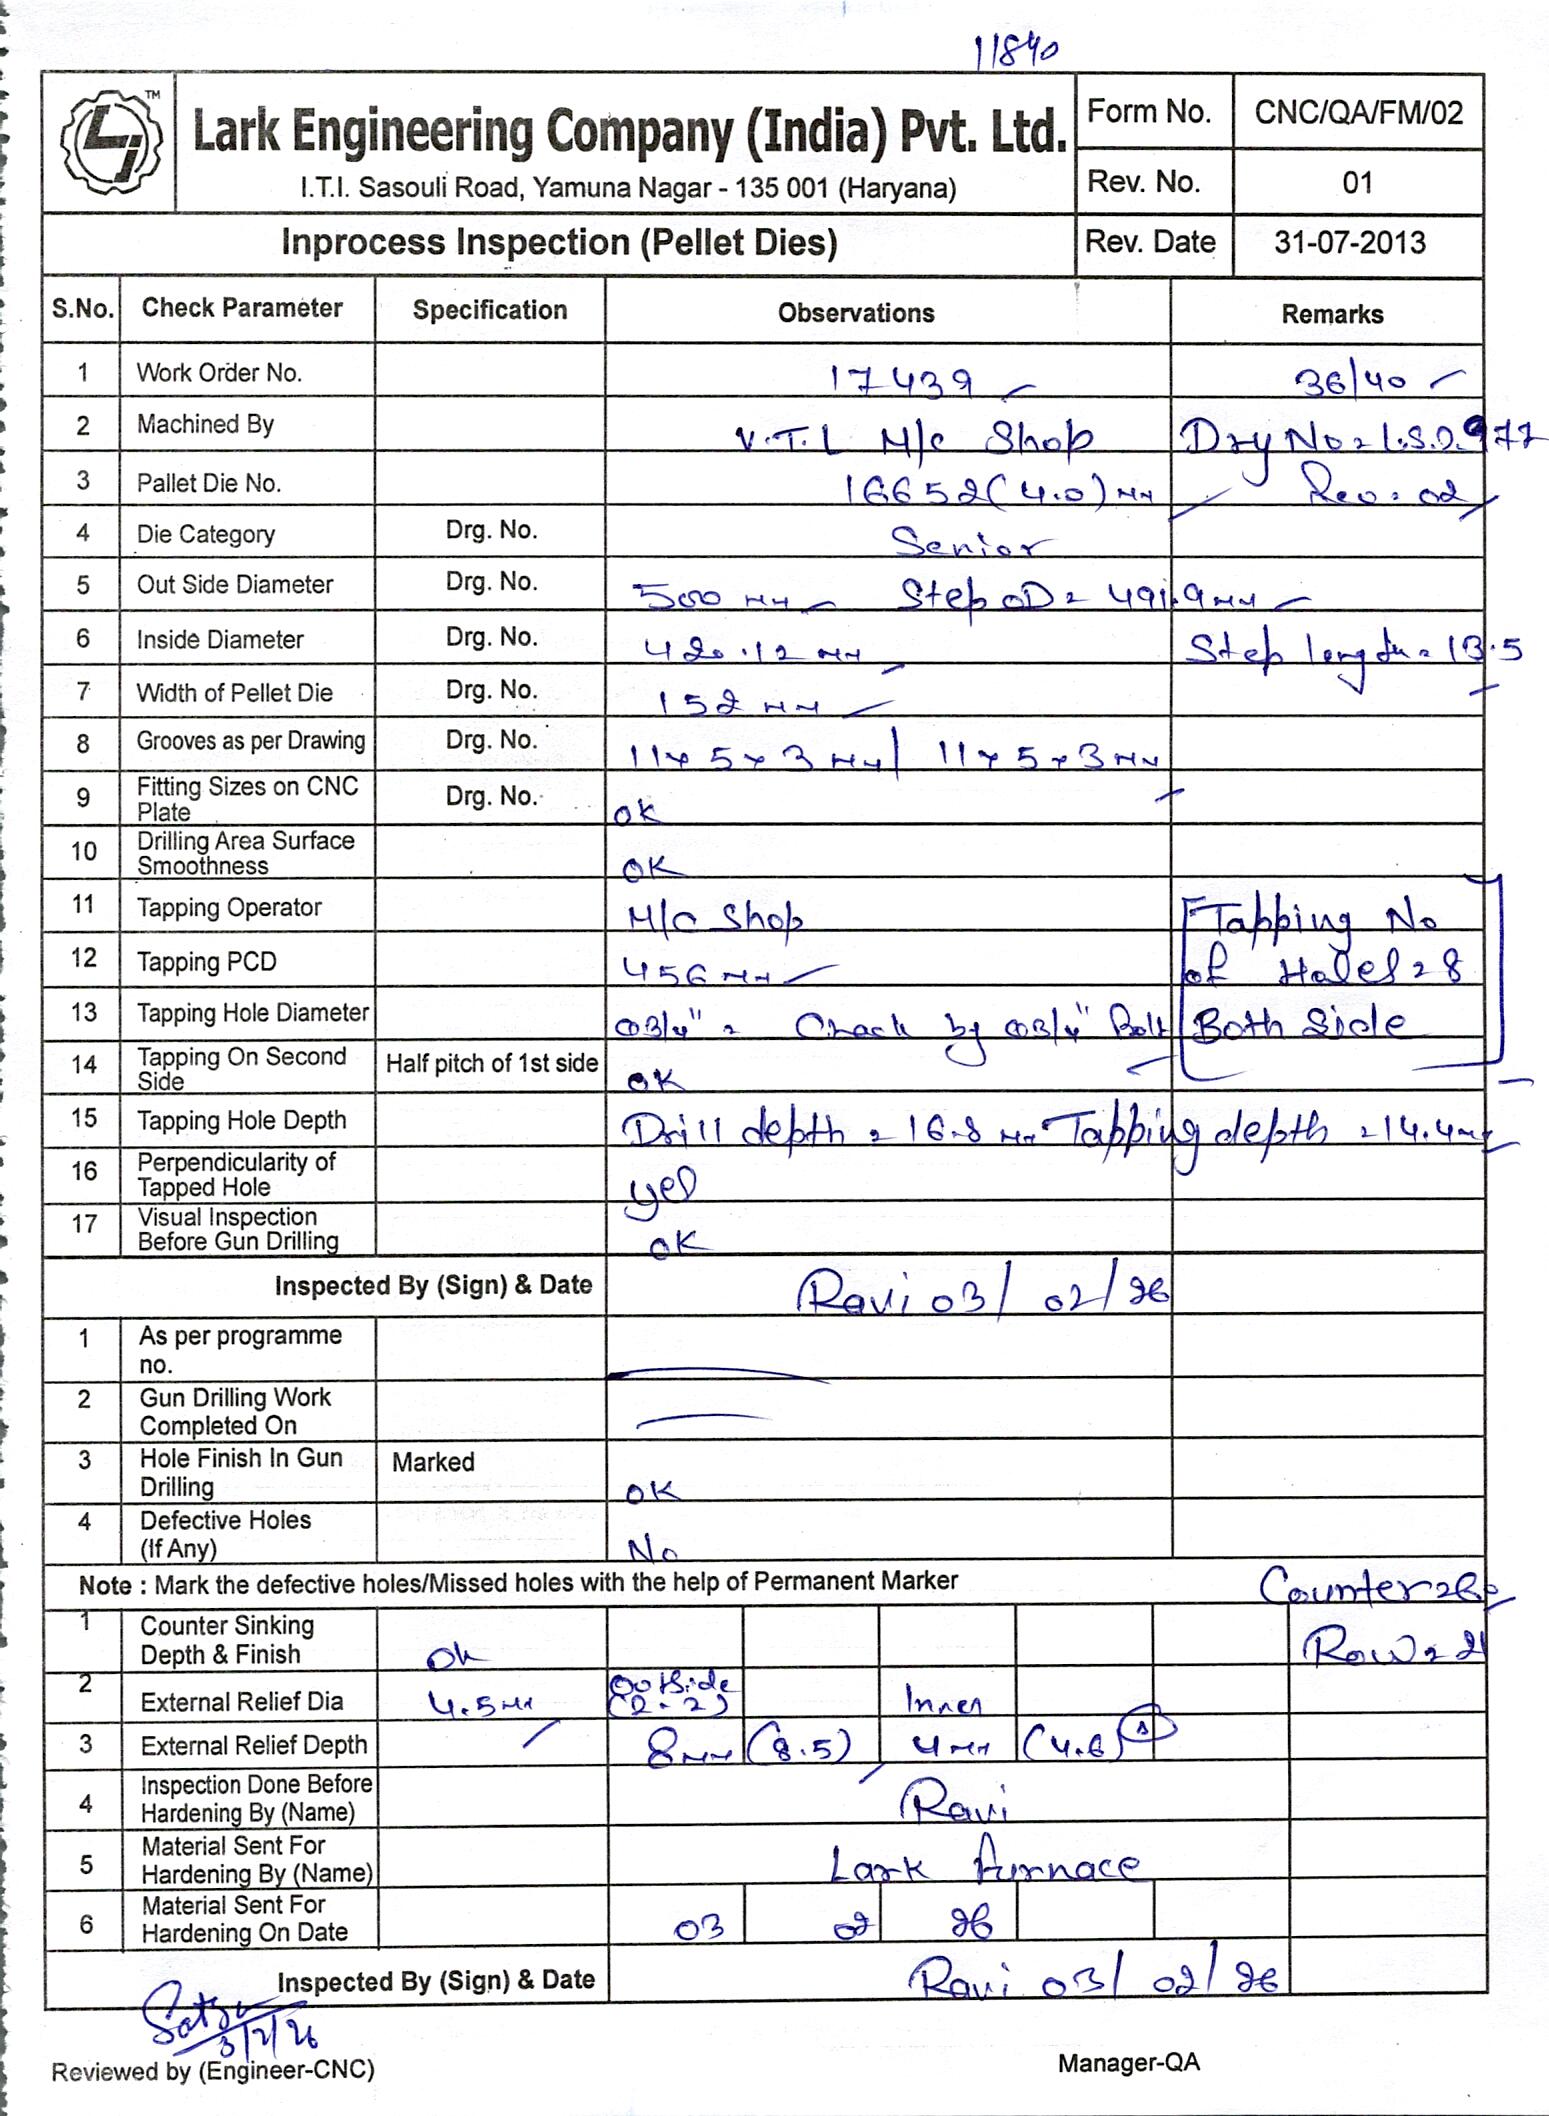 11840
TM
Lark Engineering Company (India) Pvt. Ltd.
I.T.I. Sasouli Road, Yamuna Nagar - 135 001 (Haryana)
Form No. CNC/QA/FM/02
Rev. No. 01
Inprocess Inspection (Pellet Dies) Rev. Date 31-07-2013
S.No. Check Parameter Specification Observations Remarks
1 Work Order No. 17439 36/40
2 Machined By V.T.L M/c Shop Dry No = L.S.D. 977
3 Pallet Die No. 16652 (4.0) mm Rev. 02
4 Die Category Drg. No. Senior
5 Out Side Diameter Drg. No. 500 mm Step OD = 491.9 mm
6 Inside Diameter Drg. No. 420.12 mm Step length = 13.5
7 Width of Pellet Die Drg. No. 152 mm
8 Grooves as per Drawing Drg. No. 11 x 5 x 3 mm / 11 x 5 x 3 mm
9 Fitting Sizes on CNC
Plate Drg. No. OK
10 Drilling Area Surface
Smoothness OK
11 Tapping Operator M/C Shop Tapping No
12 Tapping PCD 456 mm of Holes = 8
13 Tapping Hole Diameter Ø3/4" = Check by Ø3/4" Bolt Both Side
14 Tapping On Second
Side Half pitch of 1st side OK
15 Tapping Hole Depth Drill depth = 16.8 mm Tapping depth = 14.4 mm
16 Perpendicularity of
Tapped Hole yes
17 Visual Inspection
Before Gun Drilling OK
Inspected By (Sign) & Date Ravi 03/02/26
1 As per programme
no.
2 Gun Drilling Work
Completed On
3 Hole Finish In Gun
Drilling Marked OK
4 Defective Holes
(If Any) No
Note : Mark the defective holes/Missed holes with the help of Permanent Marker Counter
1 Counter Sinking
Depth & Finish Ok Row = 21
2 External Relief Dia 4.5 mm Outside
(2-2) Inner
3 External Relief Depth 8 mm (8.5) 4 mm (4.6)
4 Inspection Done Before
Hardening By (Name) Ravi
5 Material Sent For
Hardening By (Name) Lark furnace
6 Material Sent For
Hardening On Date 03 02 26
Inspected By (Sign) & Date Ravi 03/02/26
3/2/26
Reviewed by (Engineer-CNC) Manager-QA